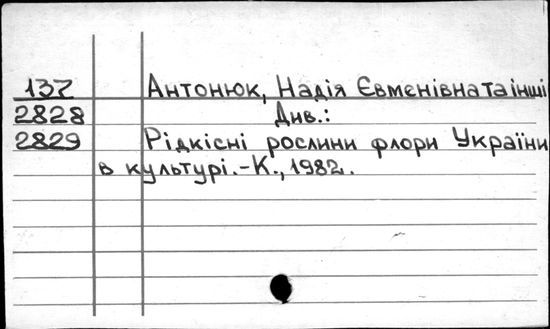 137 Антонюк, Надія Євменівна та інші
2828 Див.:
2829 Рідкісні рослини флори України
в культурі.-К., 1982.